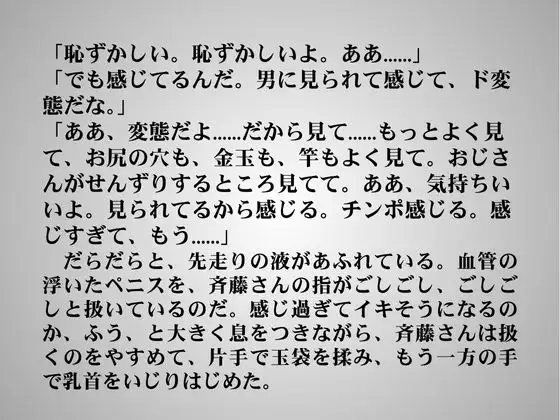 「恥ずかしい。恥ずかしいよ。ああ……」
「でも感じてるんだ。男に見られて感じて、ド変
態だな。」
「ああ、変態だよ……だから見て……もっとよく見
て、お尻の穴も、金玉も、竿もよく見て。おじさ
んがせんずりするところ見てて。ああ、気持ちい
いよ。見られてるから感じる。チンポ感じる。感
じすぎて、もう……」
　だらだらと、先走りの液があふれている。血管の
浮いたペニスを、斉藤さんの指がごしごし、ごしご
しと扱いているのだ。感じ過ぎてイキそうになるの
か、ふう、と大きく息をつきながら、斉藤さんは扱
くのをやすめて、片手で玉袋を揉み、もう一方の手
で乳首をいじりはじめた。